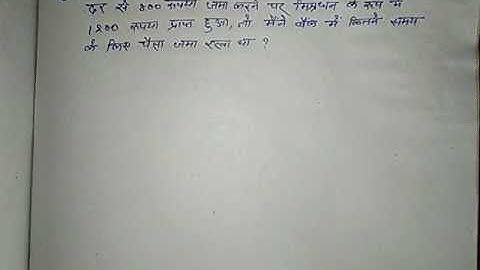 दर से 800 रुपया जमा करने पर मिश्रधन के रूप में
1200 रुपया प्राप्त हुआ, तो मैंने बैंक में कितने समय
के लिए पैसा जमा रखा था ?